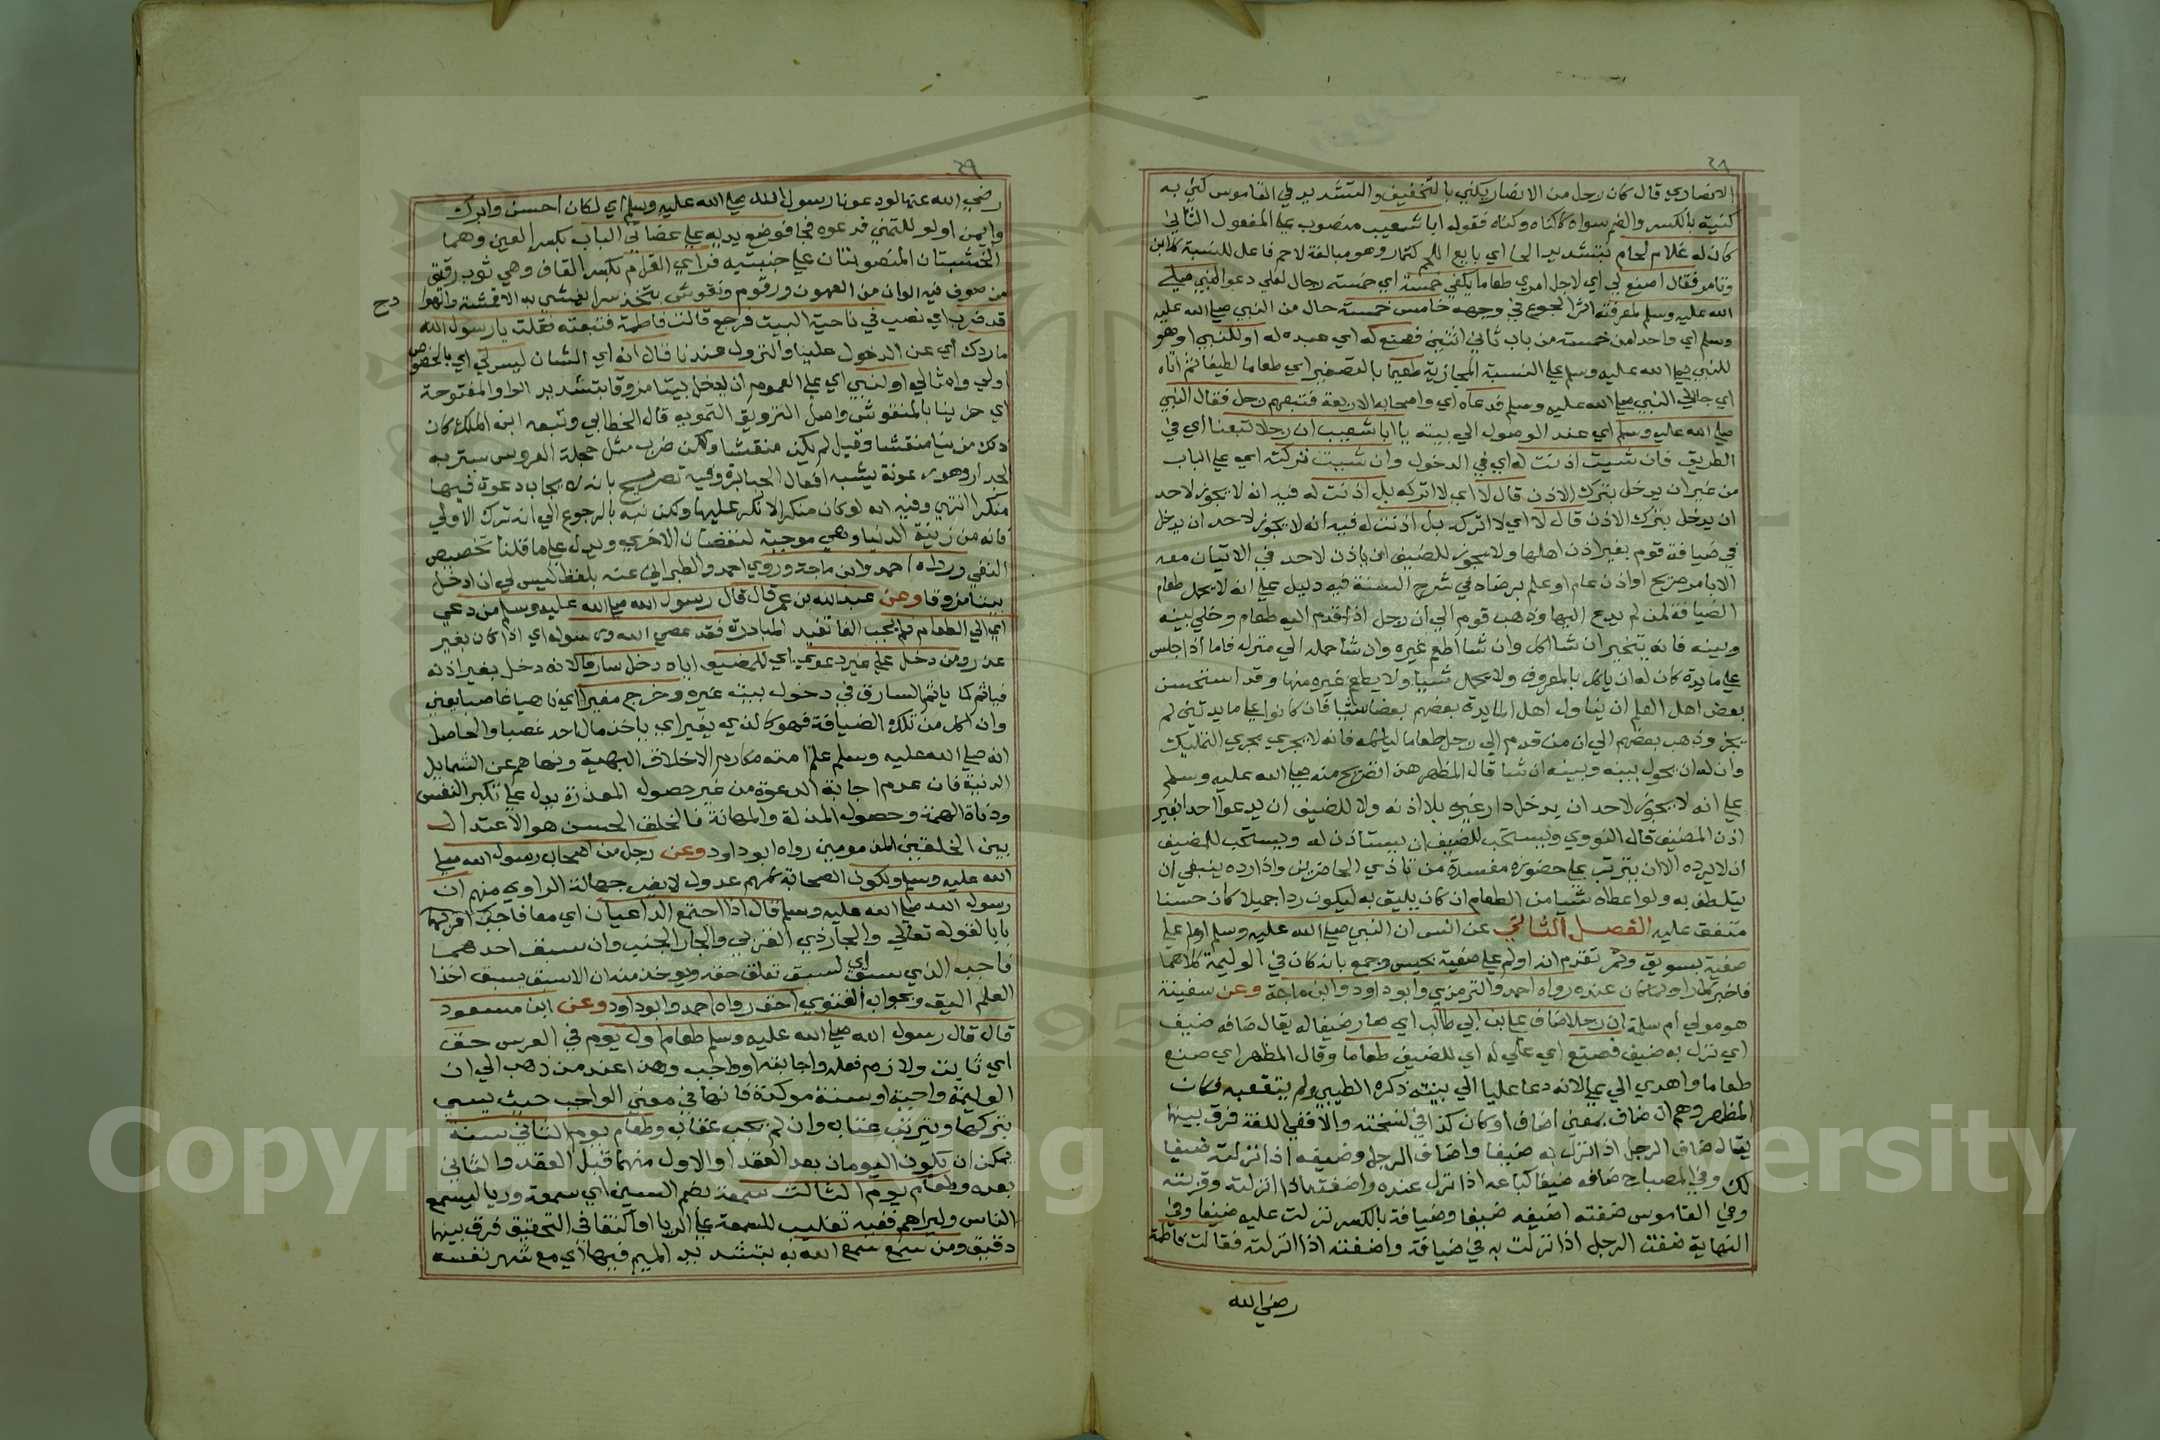 ٣٨
الانصاري قال كان رجل من الانصار يكني بالتخفيف والتشديد في القاموس كني به
كنية بالكسر والضم سواه كاكناه وكناه فقوله ابا شعيب منصوب على المفعول الثاني
كان له غلام لحام بتشديد الحا اي بايع اللحم كتمار وهو مبالغة لاحم فاعل للنسبة كلابن
وتامر فقال اصنع لي اي لاجل امري طعاما يكفي خمسة اي خمسة رجال لعلي دعو النبي صلى
الله عليه وسلم لمعرفته اثر الجوع في وجهه خامس خمسة حال من النبي صلى الله عليه
وسلم اي واحدا من خمسة من باب ثاني اثنين فصنع له اي عبده له او للنبي او هو
للنبي صلى الله عليه وسلم على النسبة المجازية طعيما بالتصغير اي طعاما لطيفا ثم اتاه
اي جا الي النبي صلى الله عليه وسلم فدعاه اي واصحابه الاربعة فتبعهم رجل فقال النبي
صلى الله عليه وسلم اي عند الوصول الي بيته يا ابا شعيب ان رجلا تبعنا اي في
الطريق فان شيت اذنت له اي في الدخول وان شيت تركته اي على الباب
من غير ان يدخل بترك الاذن قال لا اي لا اتركه بل اذنت له فيه انه لا يجوز لاحد
ان يدخل بترك الاذن قال لا اي لا اتركه بل اذنت له فيه انه لا يجوز لاحد ان يدخل
في ضيافة قوم بغير اذن اهلها ولا يجوز للضيف ان ياذن لاحد في الاتيان معه
الا بامر صريح او اذن عام او علم برضاه في شرح السنة فيه دليل على انه لا يحل طعام
الضيافة لمن لم يدع اليها وذهب قوم الي ان رجل اذا قدم اليه طعام وخلي بينه
وبينه فانه يتخير ان شا اكل وان شا اطعم غيره وان شا حمله الي منزله فاما اذا جلس
علي مايدة كان له ان ياكل بالمعروف ولا يحمل شييا ولا يطعم غيره منها وقد استحسن
بعض اهل العلم ان يناول اهل المايدة بعضهم بعضا شييا فان كانوا علي مايدتين لم
يجز وذهب بعضهم الي ان من قدم الي رجل طعاما لياكله فانه لا يجري مجري التمليك
وان له ان يحول بينه وبينه ان شا قال المظهر هذا تصريح منه صلى الله عليه وسلم
علي انه لا يجوز لاحد ان يدخل دار غيره بلا اذنه ولا للضيف ان يدعوا احدا بغير
اذن المضيف قال النووي ويستحب للضيف ان يستاذن له ويستحب للمضيف
ان لا يرده الا ان يترتب علي حضوره مفسدة من تاذي الحاضرين واذا رده ينبغي ان
يتلطف به ولو اعطاه شييا من الطعام ان كان يليق به ليكون ردا جميلا كان حسنا
متفق عليه الفصل الثاني عن انس ان النبي صلى الله عليه وسلم اولم علي
صفية بسويق وتمر تقدم انه اولم علي صفية بحيس وجمع بانه كان في الوليمة كلاهما
فاخبر كل راو بما كان عنده رواه احمد والترمذي وابو داود وابن ماجة وعن سفينة
هو مولي ام سلمة ان رجلا ضاف علي بن ابي طالب اي صار ضيفا له يقال ضافه ضيف
اي نزل به ضيف فصنع اي علي له اي للضيف طعاما وقال المظهر اي صنع
طعاما واهدي الي علي لا انه دعا عليا الي بيته ذكره الطيبي ولم يتعقبه فكان
المظهر وهم ان ضاف بمعني اضاف او كان كذا في نسخته والا ففي اللغة فرق بينهما
يقال ضاف الرجل اذا نزل به ضيفا واضاف الرجل وضيفه اذا نزلته ضيفا
لك وفي المصباح ضافه ضيفا كباعه اذا نزل عنده واضفته اذا انزلته وقريته
وفي القاموس ضفته اضيفه ضيفا وضيافة بالكسر نزلت عليه ضيفا وفي
النهاية ضفت الرجل اذا نزلت به في ضيافة واضفته اذا انزلته فقالت فاطمة
رضي الله
٣٩
رضي الله عنها لو دعونا رسول الله صلى الله عليه وسلم اي لكان احسن وابرك
وايمن او لو للتمني فدعوه فجا فوضع يديه علي عضادتي الباب بكسر العين وهما
الخشبتان المنصوبتان علي جنبتيه فراي القرام بكسر القاف وهي ثوب رقيق
من صوف فيه الوان من العهون ورقوم ونقوش يتخذ سترا يغشي به الاقمشة والهوادج
قد ضرب اي نصب في ناحية البيت فرجع قالت فاطمة فتبعته فقلت يا رسول الله
ما ردك اي عن الدخول علينا والنزول عندنا قال انه اي الشان ليس لي اي بالخصوص
اولي وامثالي او لنبي اي علي العموم ان يدخل بيتا مزوقا بتشديد الواو المفتوحة
اي مزينا بالمنقوش واصل التزويق التمويه قال الخطابي وتبعه ابن الملك كان
ذلك مزينا منقشا وقيل لم يكن منقشا ولكن ضرب مثل حجلة العروس ستر به
الجدار وهو رعونة يشبه افعال الجبابرة وفيه تصريح بانه لا يجاب دعوة فيها
منكر انتهي وفيه انه لو كان منكرا لانكر عليها ولكن نبه بالرجوع الي انه ترك الاولي
فانه من زينة الدنيا وهي موجبة لنقصان الاخري ويدل علي ما قلنا تخصيص
النفي رواه احمد وابن ماجة وروي احمد والطبراني عنه بلفظ ليس لي ان ادخل
بيتا مزوقا وعن عبد الله بن عمر قال قال رسول الله صلى الله عليه وسلم من دعي
اي الي الطعام فلم يجب الفا تفيد المبادرة فقد عصي الله ورسوله اي اذا كان بغير
عذر ومن دخل علي غير دعوة اي للمضيف اياه دخل سارقا لانه دخل بغير اذنه
فياثم كما ياثم السارق في دخول بيته غيره وخرج مغيرا اي ناهبا غاصبا يعني
وان اكل من تلك الضيافة فهو كالذي يغير اي ياخذ مال احد غصبا والحاصل
انه صلى الله عليه وسلم علم امته مكارم الاخلاق البهية ونهاهم عن الشمايل
الدنية فان عدم اجابة الدعوة من غير حصول المعذرة يدل علي تكبر النفس
ودناة الهمة وحصول المذلة والمهانة فالخلق الحسن هو الاعتدال
بين الخلقين المذمومين رواه ابو داود وعن رجل من اصحاب رسول الله صلى
الله عليه وسلم ولكون الصحابة كلهم عدول لا يضر جهالة الراوي منهم ان
رسول الله صلى الله عليه وسلم قال اذا اجتمع الداعيان اي معا فاجب اقربهما
بابا لقوله تعالي والجار ذي القربي والجار الجنب وان سبق احدهما
فاجب الذي سبق اي لسبق تعلق حقه ويوخذ منه ان الاسبق يسبق اخذا
العلم اليق وجواب الفتوي احق رواه احمد وابو داود وعن ابن مسعود
قال قال رسول الله صلى الله عليه وسلم طعام اول يوم في العرس حق
اي ثابت ولازم فعله واجابته او واجب وهذا عند من ذهب الي ان
الوليمة واجبة او سنة موكدة فانها في معني الواجب حيث يسيي
بتركها ويترتب عتابه وان لم يجب عقابه وطعام يوم الثاني سنة
يمكن ان يكون اليومان بعد العقد او الاول منهما قبل العقد والثاني
بعده وطعام يوم الثالث سمعة بضم السين اي سمعة وريا ليسمع
الناس وليراهم ففيه تغليب للسمعة علي الريا او اكتفا في التحقيق فرق بينهما
دقيق ومن سمع سمع الله به بتشديد الميم فيهما اي مع شهر نفسه
Copyright © King Saud University
1957